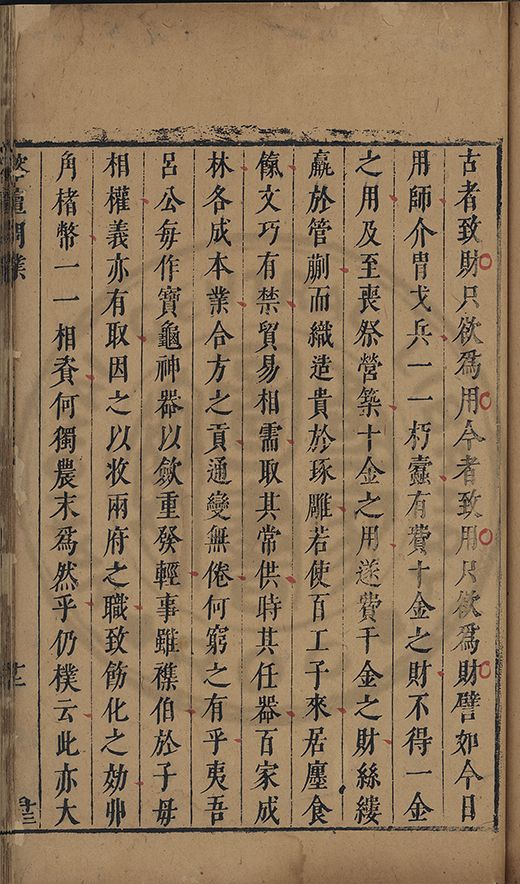 古者致財只欲爲用今者致用只欲爲財譬如今日
用師介胄戈兵一一朽蠹有費十金之財不得一金
之用及至喪祭營築十金之用遂費千金之財絲縷
羸於管蒯而織造貴於琢雕若使百工子來居廛食
餼文巧有禁貿易相需取其常供時其任器百家成
林各成本業合方之貢通變無倦何窮之有乎夷吾
呂公每作寶龜神器以斂重發輕事雖襍伯於子母
相權義亦有取因之以收兩府之職致飭化之効丱
角楮幣一一相賚何獨農末爲然乎仍樸云此亦大